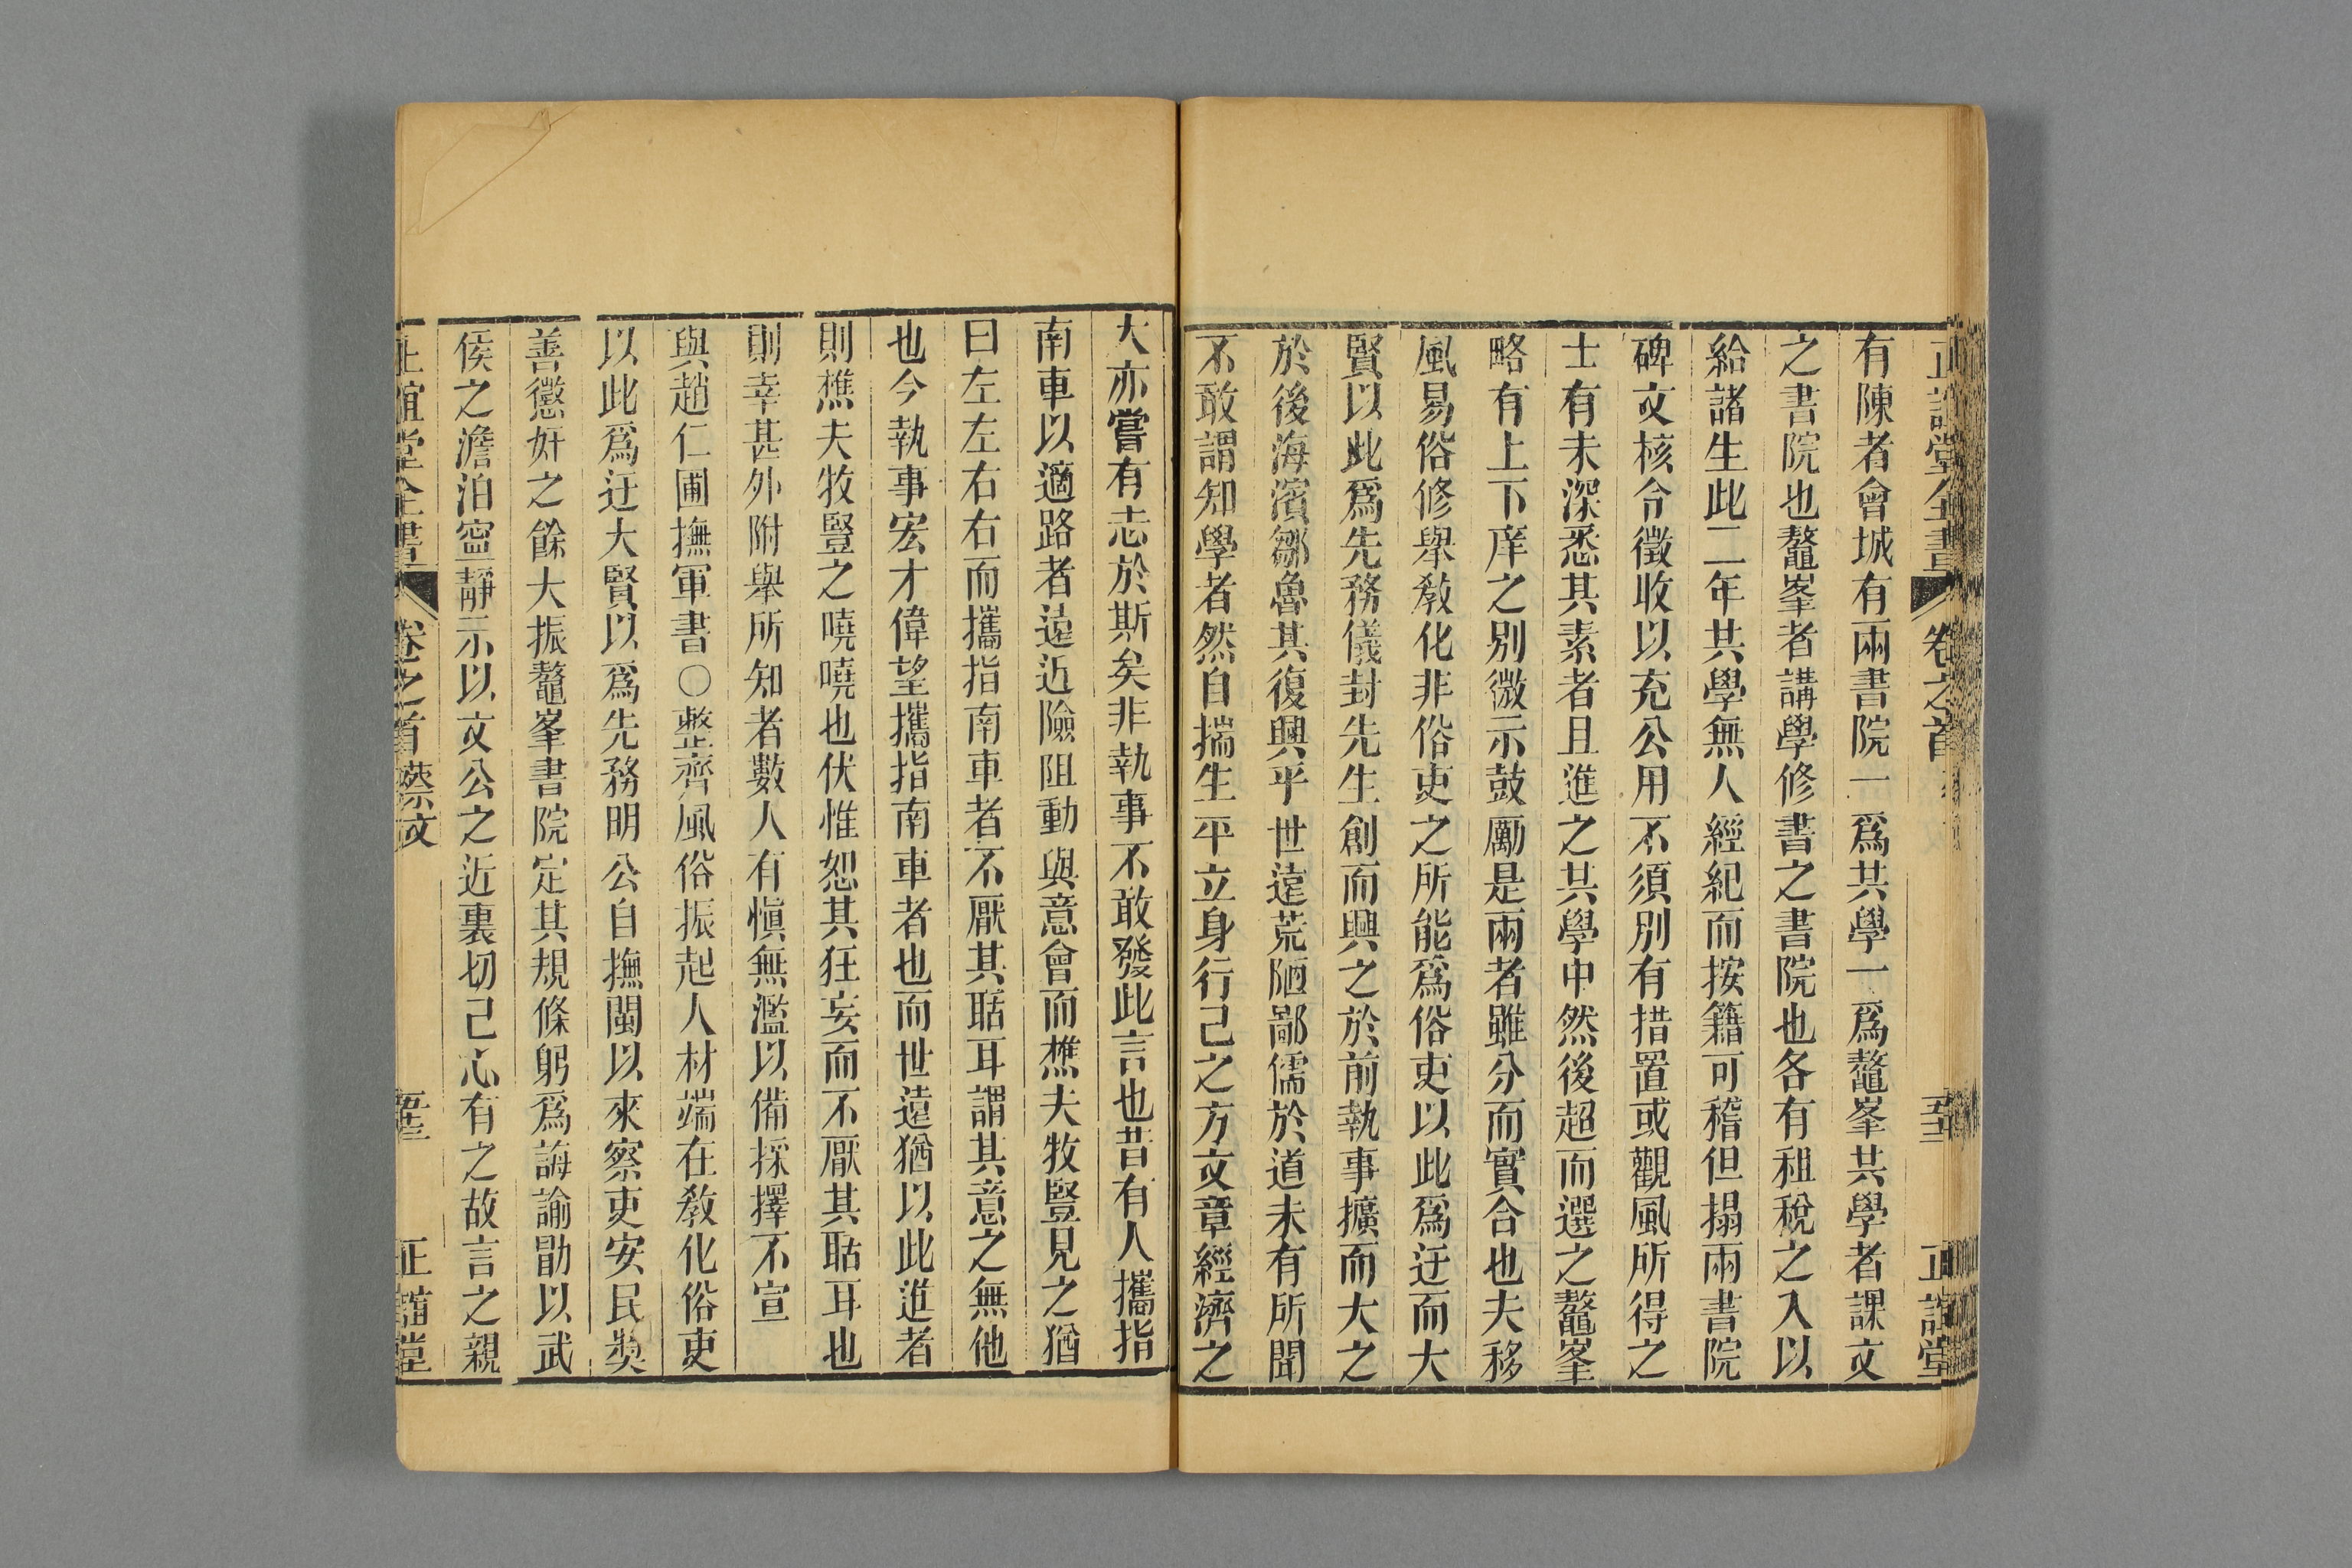 正誼堂全書 卷之首 五十二 正誼堂
有陳者會城有兩書院一爲共學一爲鼇峯共學者課文
之書院也鼇峯者講學修書之書院也各有租稅之入以
給諸生此二年共學無人經紀而按籍可稽但搨兩書院
碑文核令徵收以充公用不須別有措置或觀風所得之
士有未深悉其素者且進之共學中然後超而選之鼇峯
略有上下庠之別微示鼓勵是兩者雖分而實合也夫移
風易俗修舉敎化非俗吏之所能爲俗吏以此爲迂而大
賢以此爲先務儀封先生創而興之於前執事擴而大之
於後海濱鄒魯其復興乎世遠荒陋鄙儒於道未有所聞
不敢謂知學者然自揣生平立身行己之方文章經濟之
大亦嘗有志於斯矣非執事不敢發此言也昔有人攜指
南車以適路者遠近險阻動與意會而樵夫牧豎見之猶
曰左左右右而攜指南車者不厭其聒耳謂其意之無他
也今執事宏才偉望攜指南車者也而世遠猶以此進者
則樵夫牧豎之嘵嘵也伏惟恕其狂妄而不厭其聒耳也
則幸甚外附舉所知者數人有愼無濫以備採擇不宣
與趙仁圃撫軍書〇整齊風俗振起人材端在敎化俗吏
以此爲迂大賢以爲先務明公自撫閩以來察吏安民獎
善懲奸之餘大振鼇峯書院定其規條躬爲誨諭勖以武
侯之澹泊寍靜示以文公之近裏切己惟有之故言之親
正誼堂全書 卷之首 蔡文 五十三 正誼堂